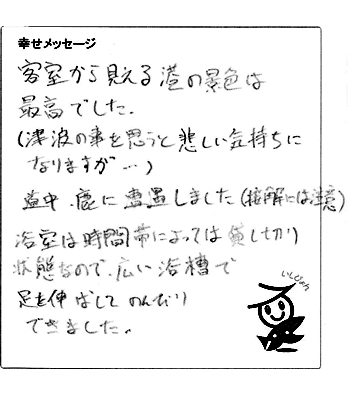 幸せメッセージ
客室から見える港の景色は
最高でした。
(津波の事を思うと悲しい気持ちに
なりますが…)
道中、鹿に遭遇しました(接触には注意)
浴室は時間帯によっては貸し切り
状態なので、広い浴槽で
足を伸ばしてのんびり
できました。